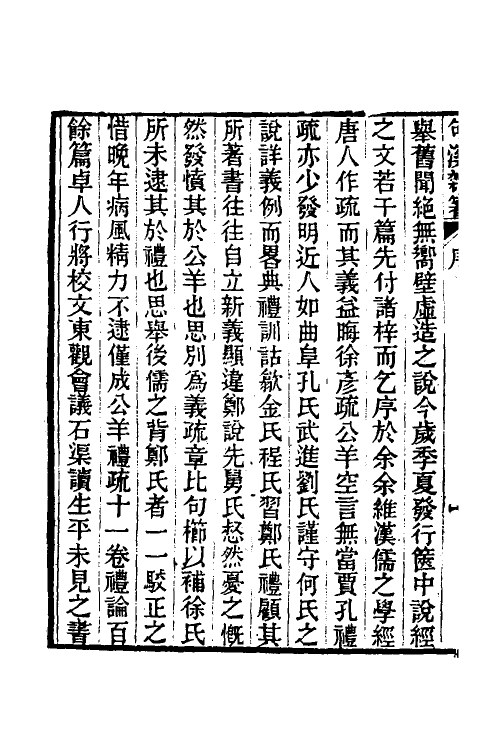 句溪雜著　序
舉舊聞絕無嚮壁虛造之說今歲季夏發行篋中說經
之文若干篇先付諸梓而乞序於余余維漢儒之學經
唐人作疏而其義益晦徐彥疏公羊空言無當賈孔禮
疏亦少發明近人如曲阜孔氏武進劉氏謹守何氏之
說詳義例而畧典禮訓詁歙金氏程氏習鄭氏禮顧其
所著書往往自立新義顯違鄭說先舅氏惄然憂之慨
然發憤其於公羊也思別為義疏章比句櫛以補徐氏
所未逮其於禮也思舉後儒之背鄭氏者一一駁正之
惜晚年病風精力不逮僅成公羊禮疏十一卷禮論百
餘篇卓人行將校文東觀會議石渠讀生平未見之書